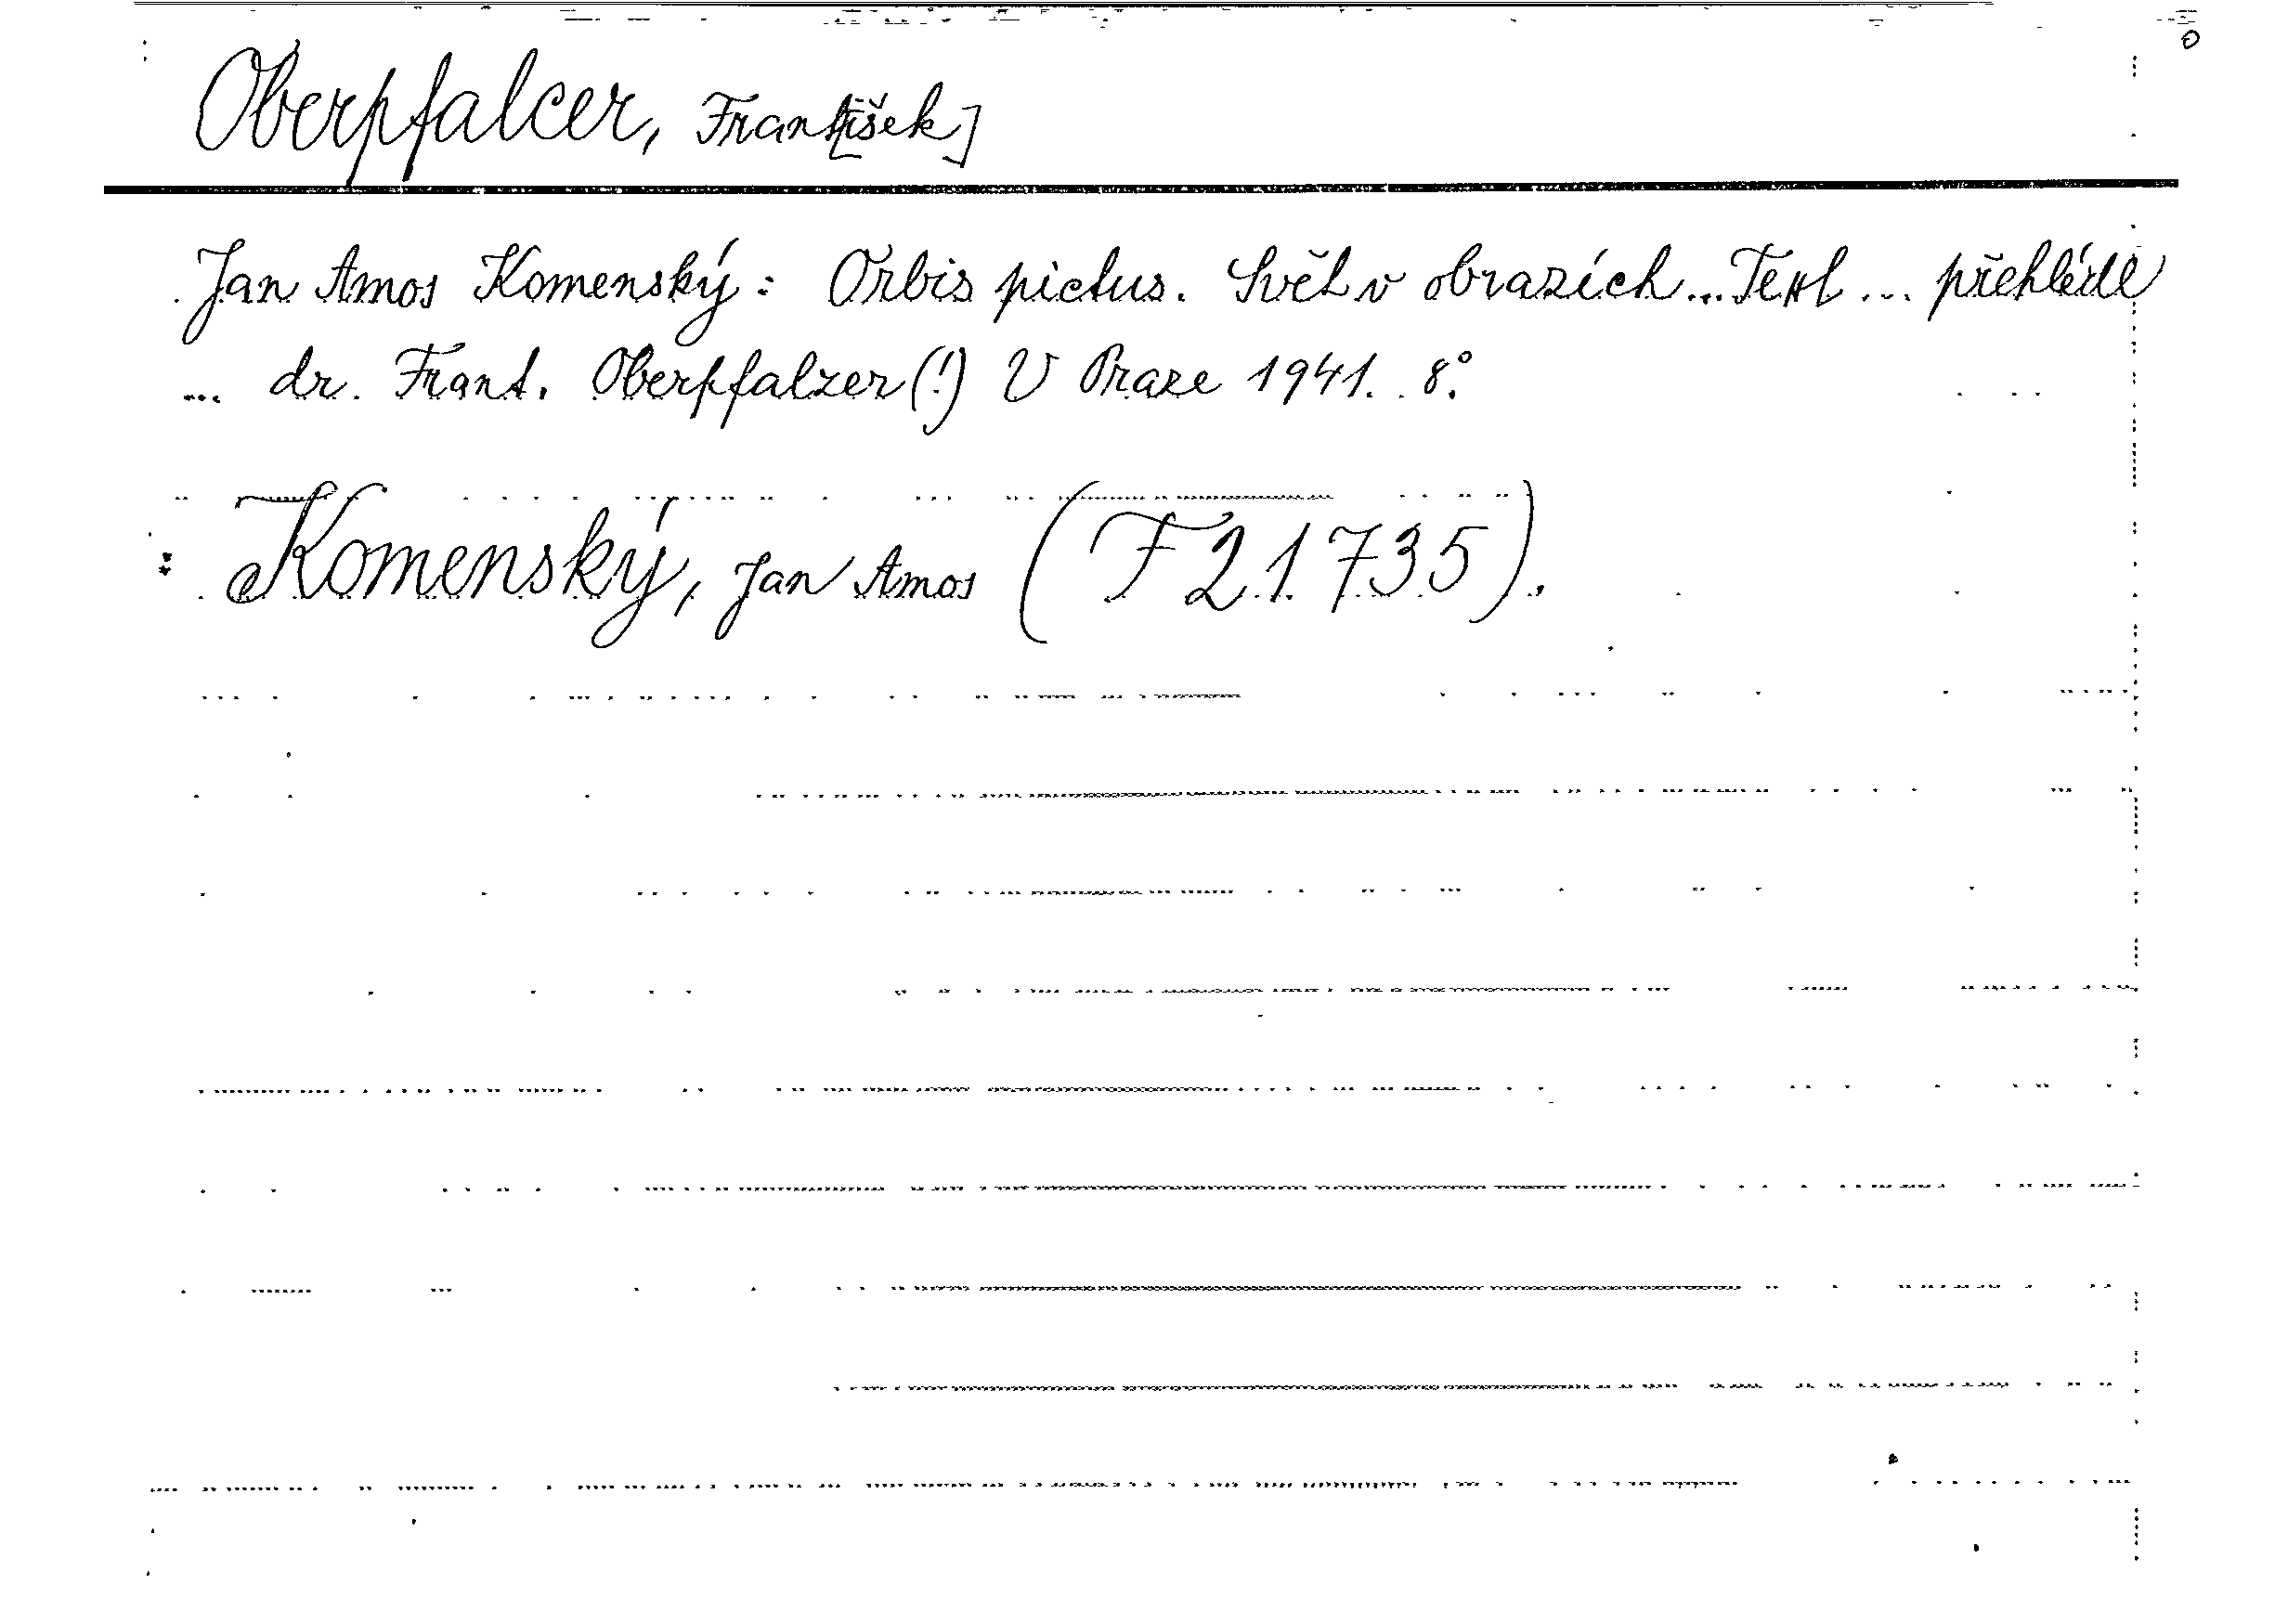 Oberpfalcer, Frant[išek]
Jan Amos Komenský: Orbis pictus. Svět v obrazích... Text ... přehlédl
... dr. Frant. Oberpfalzer (!) V Praze 1941. 8°.
: Komenský, Jan Amos (F 21.735).